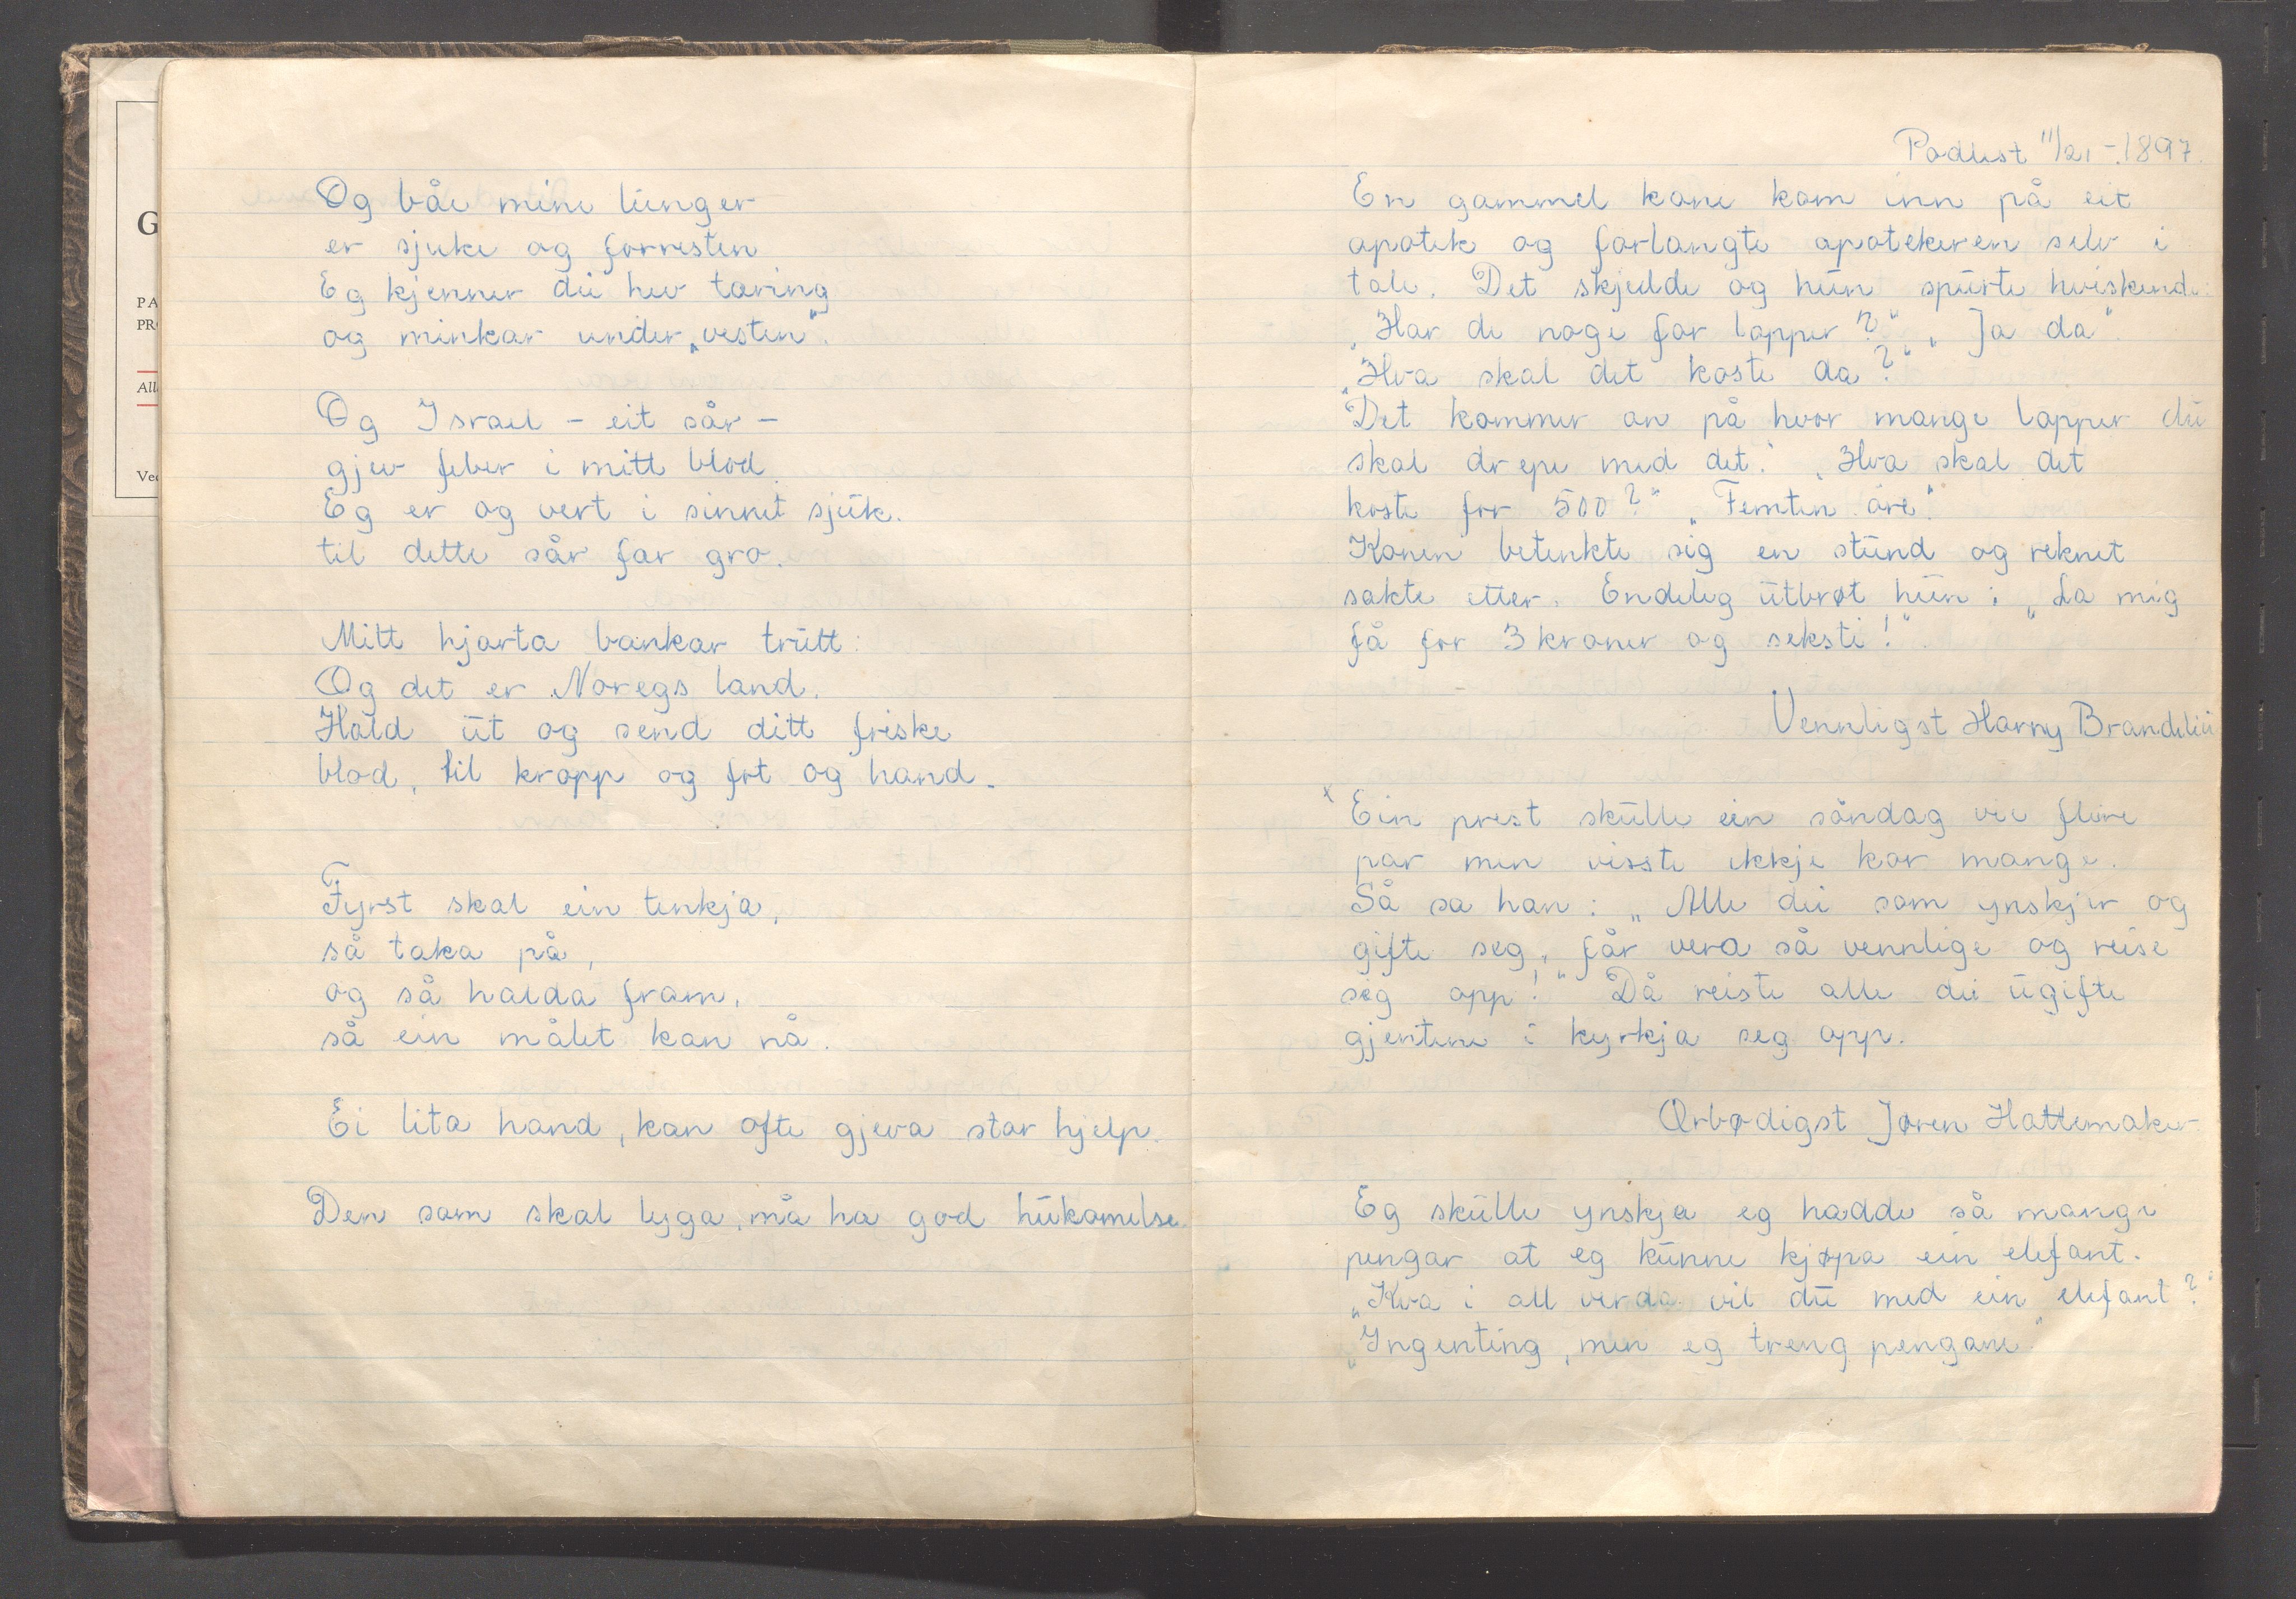 G
PA
PR
All
Ved
Og båe mine lunger
er sjuke og forresten
Eg kjenner dei hev tæring
og minkar under „vesten“.
Og Israel - eit sår -
gjev feber i mitt blod.
Eg er og vert i sinnet sjuk.
til dette sår før gro.
Mitt hjarta bankar trutt:
Og det er Noregs land.
Hald ut og send ditt friske
blod, til kropp og fot og hand.
Fyrst skal ein tenkja,
så taka på,
og så halda fram,
så ein målet kan nå.
Ei lita hand, kan ofte gjeva stor hjelp.
Den som skal lyga, må ha god hukomelse.
Podust 11/21 - 1897.
En gammel kone kom inn på eit
apotek og forlangte apotekeren selv i
tale. Det skjedde og hun spurte hviskende:
„Har de noge for lopper?“ „Ja da“.
„Hva skal det koste da?“
„Det kommer an på hvor mange lopper du
skal drepe med det.“ „Hva skal det
koste for 500?“ „Femten øre“.
Konen betenkte sig en stund og reknet
sakte etter. Endelig utbrøt hun: „La mig
få for 3 kroner og seksti!“
Vennligst Harny Brandeliü
x Ein prest skulle ein søndag vie fleire
par men visste ikkje kor mange.
Så sa han: „Alle dei som ynskjer og
gifte seg, får vera så vennlige og reise
seg opp!“ Då reiste alle dei ugifte
gjentene i kyrkja seg opp.
Ørbødigst Jøren Hattemaker
Eg skulle ynskja eg hadde så mange
pengar at eg kunne kjøpa ein elefant.
„Kva i all verda vil du med ein elefant?“
„Ingenting, men eg treng pengane“